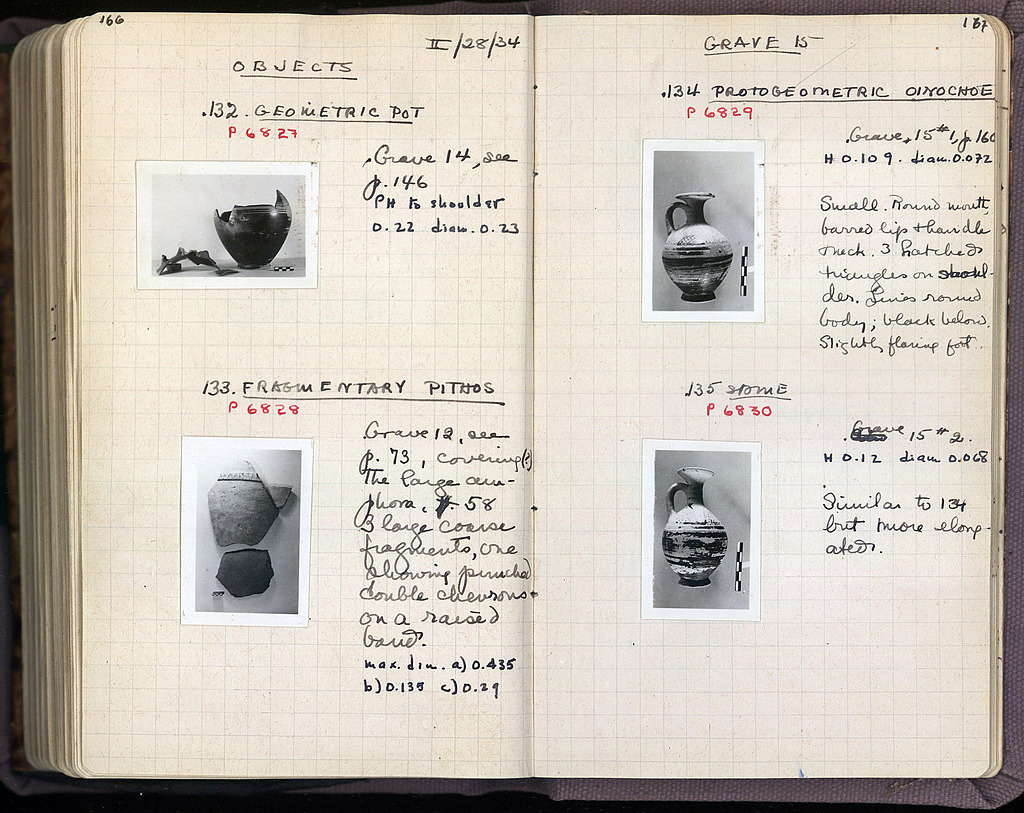 166
II/28/34
OBJECTS
.132. GEOMETRIC POT
P 6827
.Grave 14, see
p. 146
PH to shoulder
0.22 diam. 0.23
133. FRAGMENTARY PITHOS
P 6828
.Grave 12, see
p. 73, covering(?)
The large am-
phora, 58
3 large coarse
fragments, one
showing punched
double chevrons
on a raised
band.
max. dim. a) 0.435
b) 0.135 c) 0.29
167
GRAVE 15
.134 PROTOGEOMETRIC OINOCHOE
P 6829
.Grave, 15 #1, p. 160
H 0.109. diam. 0.072
Small. Round mouth,
barred lip & handle
neck. 3 hatched
triangles on shoul-
der. Lines round
body; black below.
Slightly flaring foot.
.135 SAME
P 6830
.Grave 15 #2.
H 0.12 diam 0.068
Similar to 134
but more elong-
ated.